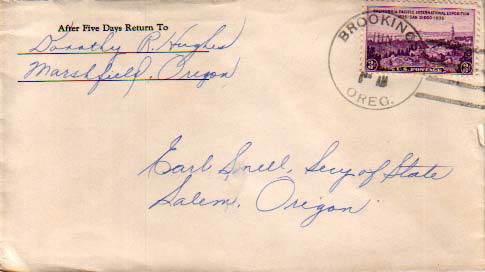 After Five Days Return To
Dorothy R. Hughes
Marshfield, Oregon
CALIFORNIA PACIFIC INTERNATIONAL EXPOSITION
SAN DIEGO
3¢ U.S. POSTAGE 3¢
BROOKING
JUN
OREG.
Earl Snell, Secy of State
Salem, Oregon